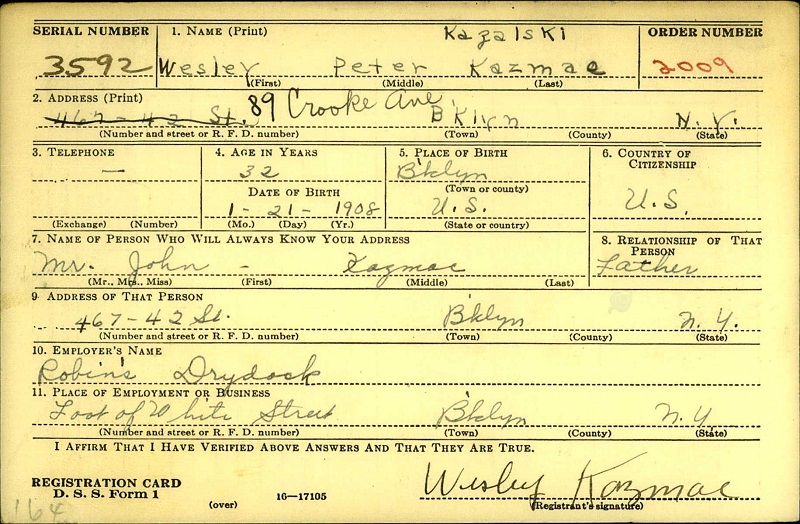 SERIAL NUMBER 1. NAME (Print) Kazalski ORDER NUMBER
3592 Wesley Peter Kazmac 2009
(First) (Middle) (Last)
2. ADDRESS (Print) 89 Crooke Ave.
467-42 St. Bklyn N.Y.
(Number and street or R. F. D. number) (Town) (County) (State)
3. TELEPHONE 4. AGE IN YEARS 5. PLACE OF BIRTH 6. COUNTRY OF CITIZENSHIP
— 32 B'klyn
DATE OF BIRTH (Town or county)
1-21-1908 U.S. U.S.
(Exchange) (Number) (Mo.) (Day) (Yr.) (State or country)
7. NAME OF PERSON WHO WILL ALWAYS KNOW YOUR ADDRESS 8. RELATIONSHIP OF THAT PERSON
Mr. John - Kazmac Father
(Mr., Mrs., Miss) (First) (Middle) (Last)
9. ADDRESS OF THAT PERSON
467-42 St. B'klyn N.Y.
(Number and street or R. F. D. number) (Town) (County) (State)
10. EMPLOYER'S NAME
Robins Drydock
11. PLACE OF EMPLOYMENT OR BUSINESS
Foot of White Street B'klyn N.Y
(Number and street or R. F. D. number) (Town) (County) (State)
I AFFIRM THAT I HAVE VERIFIED ABOVE ANSWERS AND THAT THEY ARE TRUE.
REGISTRATION CARD Wesley Kazmac
D. S. S. Form 1 (over) 16—17105 (Registrant's signature)
164